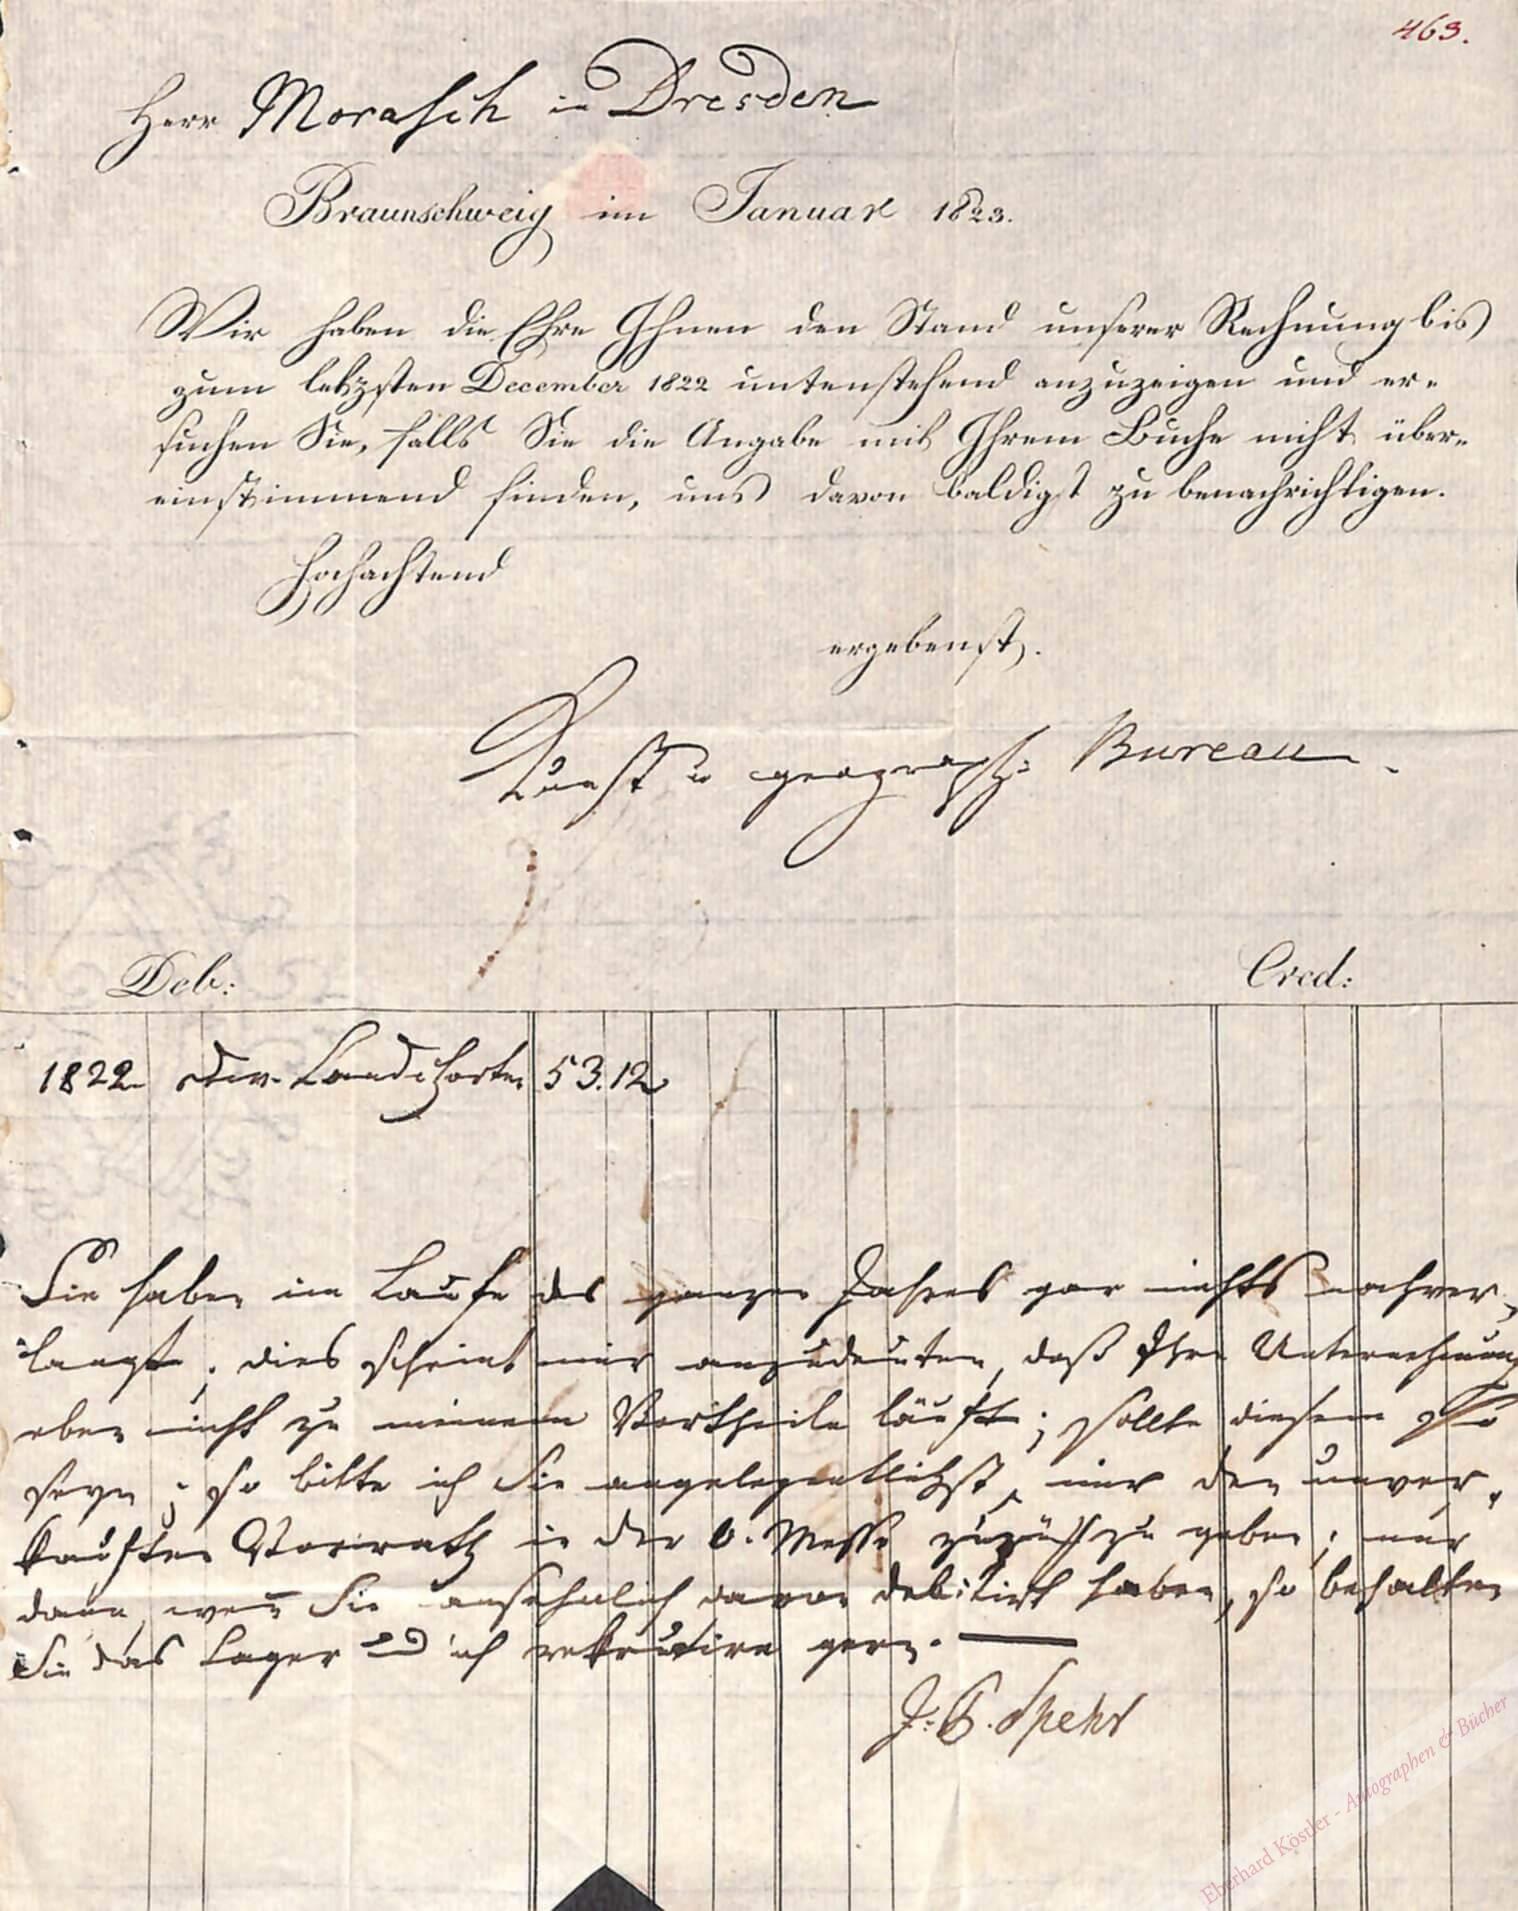 463.
Herr Morasch in Dresden
Braunschweig im Januar 1823.
Wir haben die Ehre Ihnen den Stand unserer Rechnung bis
zum letzten December 1822 untenstehend anzuzeigen und er-
suchen Sie, falls Sie die Angabe mit Ihrem Buche nicht über-
einstimmend finden, uns davon baldigst zu benachrichtigen.
Hochachtend
ergebenst.
Kunst u geograph: Bureau.
Deb: Cred:
1822 div. Landcharten 53.12
Sie haben im Laufe des ganzen Jahres gar nichts nachver-
langt; dies scheint mir anzudeuten, daß Ihre Unternehmung
eben nicht zu meinem Vortheile läuft; sollte diesem so
seyn; so bitte ich Sie angelegentlichst, mir den unver-
kauften Vorrath in der O. Messe zu geben; nur
dann, wenn Sie ansehnlich davon debitirt haben, so behalten
Sie das Lager und ich rekrutire gern. —
J. P. Spehr
Eberhard Köstler - Autographen & Bücher